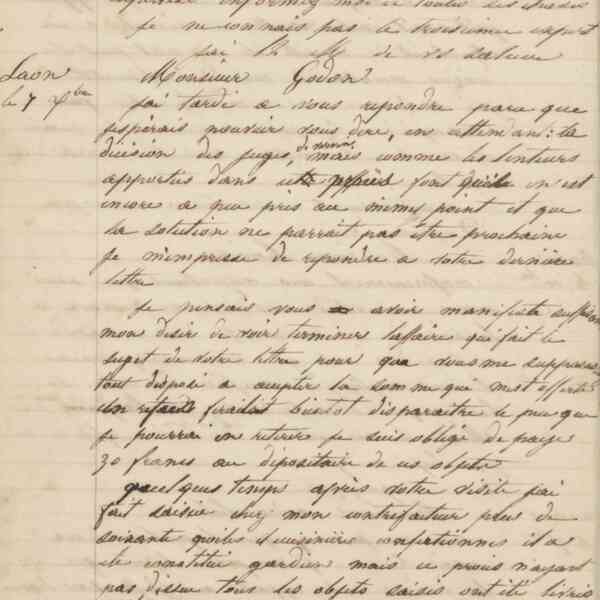 informez moi de toutes ces choses
je ne connais pas le troisieme expert
j'ai l' de vs saluer
Laon
le 7 Xbre
Monsieur Godon
j'ai tardé a vous repondre parce que
jesperais pouvoir vous dire, en attendant la
dicision des juges, mais comme les lenteurs
apportés dans font quils en est
encore a peu pris au mimes point et que
la solution ne parrait pas etre prochaine
je m'impresse de repondre a votre derniere
lettre
je pensais vous avoir manifeste
mon desir de voir terminer laffaire qui fait le
sujet de votre lettre pour que vous me supposiez
tout disposé a accepter la somme qui mest offerte
Un retard firait bientot disparaitre le peu que
je pourrai en retirer je suis obligé de paye
30 francs au dipositaire de ces objets
quelques temps après votre visite j'ai
fait saisir chez mon contrefacteur plus de
soixante poiles et cuisinière confectionnés il a
ete constitué gardien mais le procès n'ayant
pas tous les objets saisis ont eté livrés